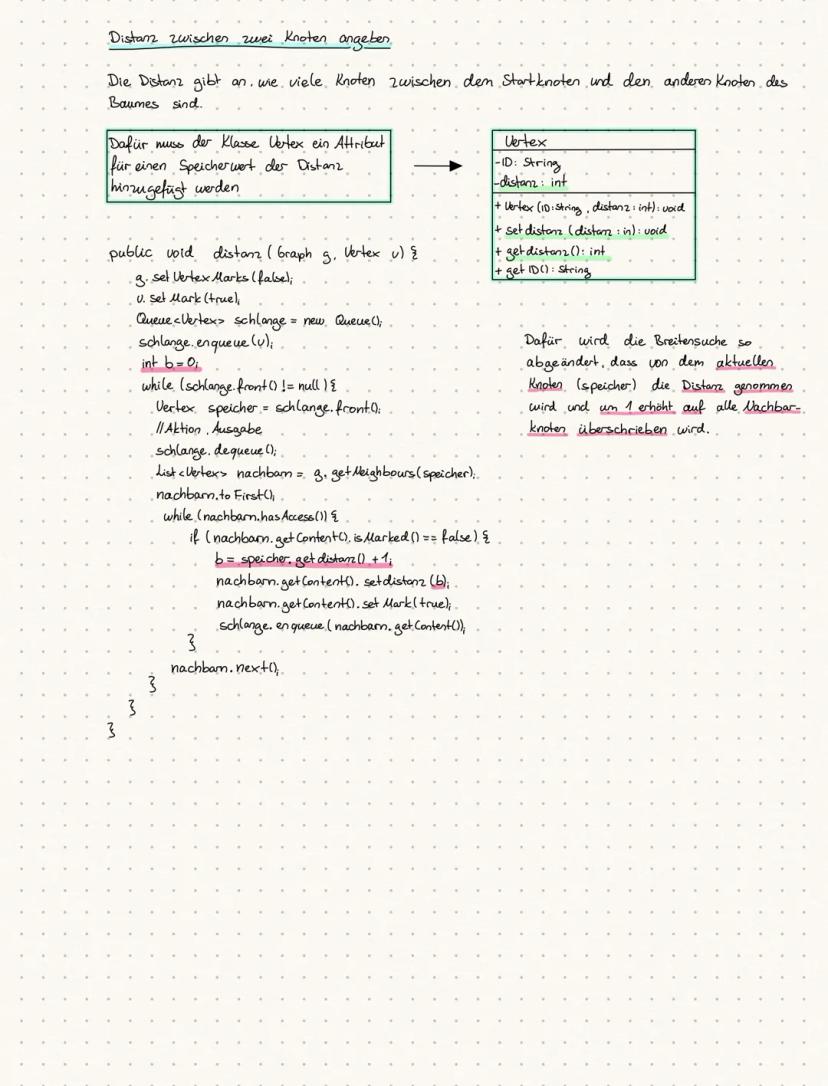 Distanz zwischen zwei Knoten angeben
Die Distanz gibt an, wie viele Knoten zwischen dem Startknoten und den anderen Knoten des
Baumes sind.
Dafür muss der Klasse Vertex ein Attribut
für einen Speicherwert der Distanz
hinzugefügt werden
Vertex
-ID: String
-distanz: int
+ Vertex (ID:String, distanz:int): void
+ setdistanz (distanz:in): void
+ getdistanz(): int
+ getID(): String
public void distanz (Graph g, Vertex v) {
g.setVertexMarks(false);
v.setMark(true);
Queue<Vertex> schlange = new Queue();
schlange.enqueue(v);
int b=0;
while (schlange.front() != null) {
Vertex speicher = schlange.front();
//Aktion, Ausgabe
schlange.dequeue();
List<Vertex> nachbarn = g.getNeighbours(speicher);
nachbarn.toFirst();
while (nachbarn.hasAccess()) {
if (nachbarn.getContent().isMarked() == false) {
b = speicher.getdistanz() +1;
nachbarn.getContent().setdistanz (b);
nachbarn.getContent().setMark(true);
schlange.enqueue(nachbarn.getContent());
}
nachbarn.next();
}
}
}
Dafür wird die Breitensuche so
abgeändert, dass von dem aktuellen
Knoten (speicher) die Distanz genommen
wird und um 1 erhöht auf alle Nachbar-
knoten überschrieben wird.